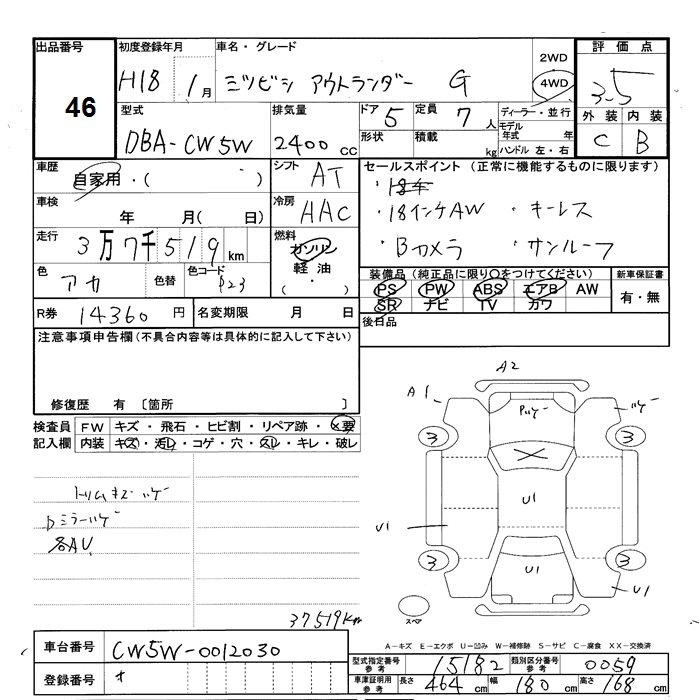 出品番号 初度登録年月 車名・グレード 2WD 評価点
46 H18 1月 ミツビシ アウトランダー G 4WD 3.5
型式 排気量 ドア 5 定員 7人 ディーラー・並行 外装 内装
DBA-CW5W 2400cc 形状 積載 kg モデル年式 年 C B
ハンドル 左・右
車歴 自家用・( ) シフト AT セールスポイント (正常に機能するものに限ります)
車検 年 月(日) 冷房 AAC ・18インチAW ・キーレス
走行 3万7千519km 燃料 ガソリン ・Bカメラ ・サンルーフ
軽油 (・)
色 アカ 色替 色コード P23 装備品(純正品に限り○をつけてください) 新車保証書
PS PW ABS エアB AW 有・無
SR ナビ TV カワ
R券 14360円 名変期限 月 日 後日品
注意事項申告欄(不具合内容等は具体的に記入して下さい)
修復歴 有 〔箇所 〕
検査員 FW キズ・飛石・ヒビ割・リペア跡・×要
記入欄 内装 キズ・汚レ・コゲ・穴・スレ・キレ・破レ
A2
A1
3 3
X
U1
U1
3 3
U1 U1
トリムキズハゲ
Dミラーハゲ
各AU
37519km
スペア
A-キズ E-エクボ U-凹み W-補修跡 S-サビ C-腐食 XX-交換済
車台番号 CW5W-0012030
登録番号
型式指定番号 参考 15182 類別区分番号 参考 0059
車庫証明用 参考 長さ 464cm 幅 180cm 高さ 168cm